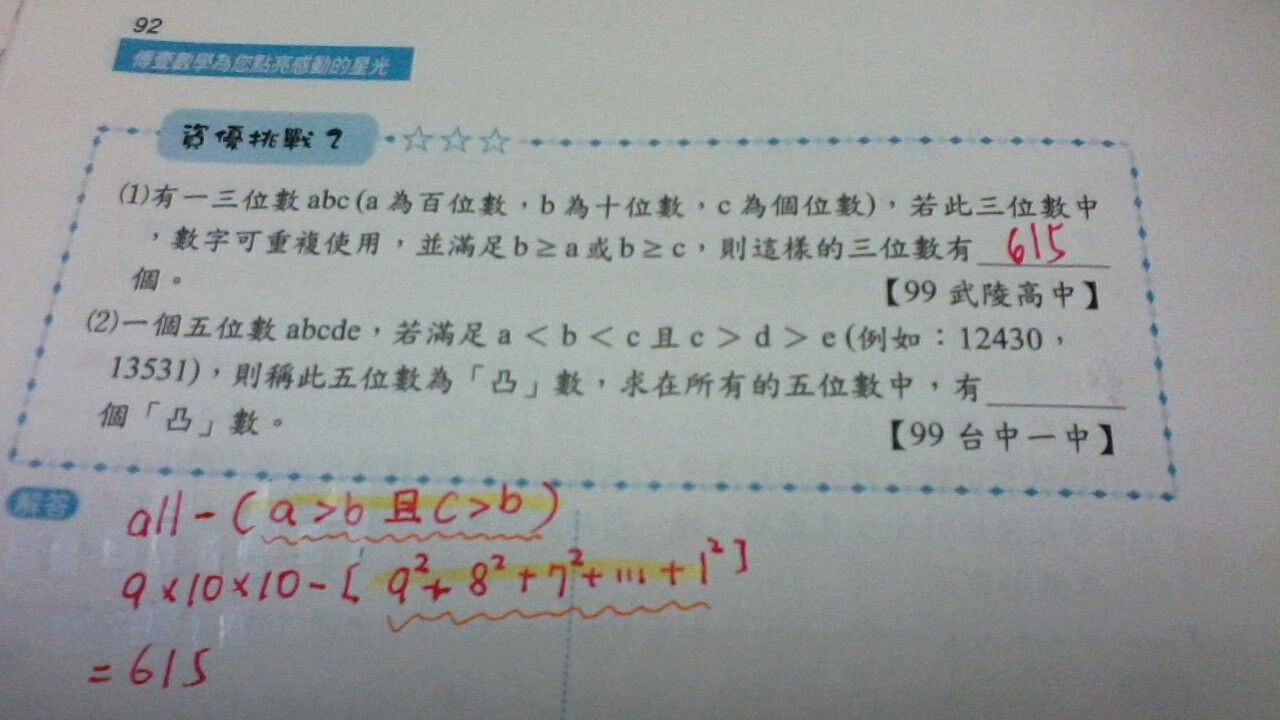 92
傅壹數學為您點亮感動的星光
資優挑戰 2 ☆☆☆
⑴有一三位數 abc (a 為百位數，b 為十位數，c 為個位數)，若此三位數中
，數字可重複使用，並滿足 b ≥ a 或 b ≥ c，則這樣的三位數有 615
個。 【99 武陵高中】
⑵一個五位數 abcde，若滿足 a < b < c 且 c > d > e (例如：12430，
13531)，則稱此五位數為「凸」數，求在所有的五位數中，有______
個「凸」數。 【99 台中一中】
解答
all - ( a > b 且 c > b )
9 × 10 × 10 - [ 9² + 8² + 7² + ... + 1² ]
= 615